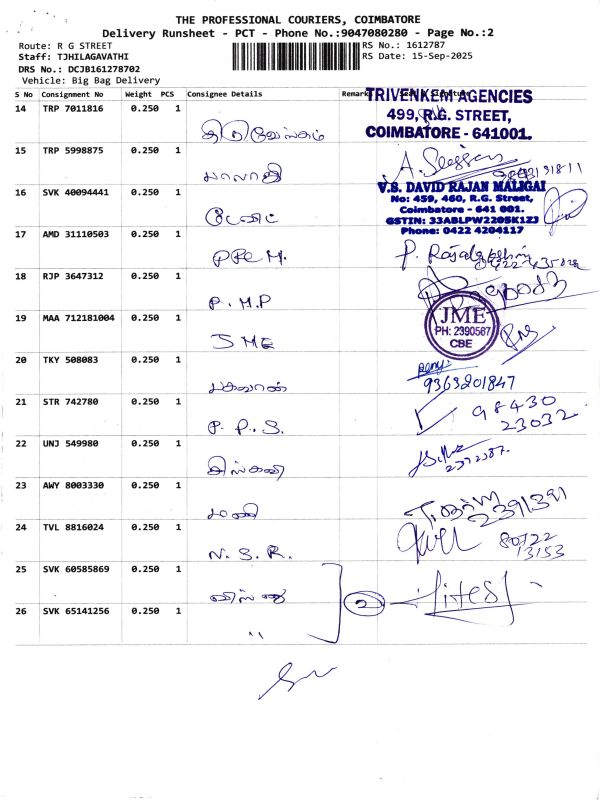 THE PROFESSIONAL COURIERS, COIMBATORE
Delivery Runsheet - PCT - Phone No.:9047080280 - Page No.:2
Route: R G STREET
RS No.: 1612787
Staff: TJHILAGAVATHI
RS Date: 15-Sep-2025
DRS No.: DCJB161278702
Vehicle: Big Bag Delivery
S No Consignment No Weight PCS Consignee Details Remark
14 TRP 7011816 0.250 1
TRIVENKEM AGENCIES
499, R.G. STREET,
COIMBATORE - 641001.
15 TRP 5998875 0.250 1
16 SVK 40094441 0.250 1
V.S. DAVID RAJAN MALIGAI
No: 459, 460, R.G. Street,
Coimbatore - 641 001.
GSTIN: 33ABLPW2205K1ZJ
Phone: 0422 4204117
17 AMD 31110503 0.250 1
18 RJP 3647312 0.250 1 P.M.P
19 MAA 712181004 0.250 1 JME
JME
PH: 2390587
CBE
20 TKY 508083 0.250 1
9363201847
21 STR 742780 0.250 1 P.P.S.
98430
23032
22 UNJ 549980 0.250 1
23 AWY 8003330 0.250 1 மணி
2391391
24 TVL 8816024 0.250 1 N.S.R.
80722
13153
25 SVK 60585869 0.250 1
2
26 SVK 65141256 0.250 1 "